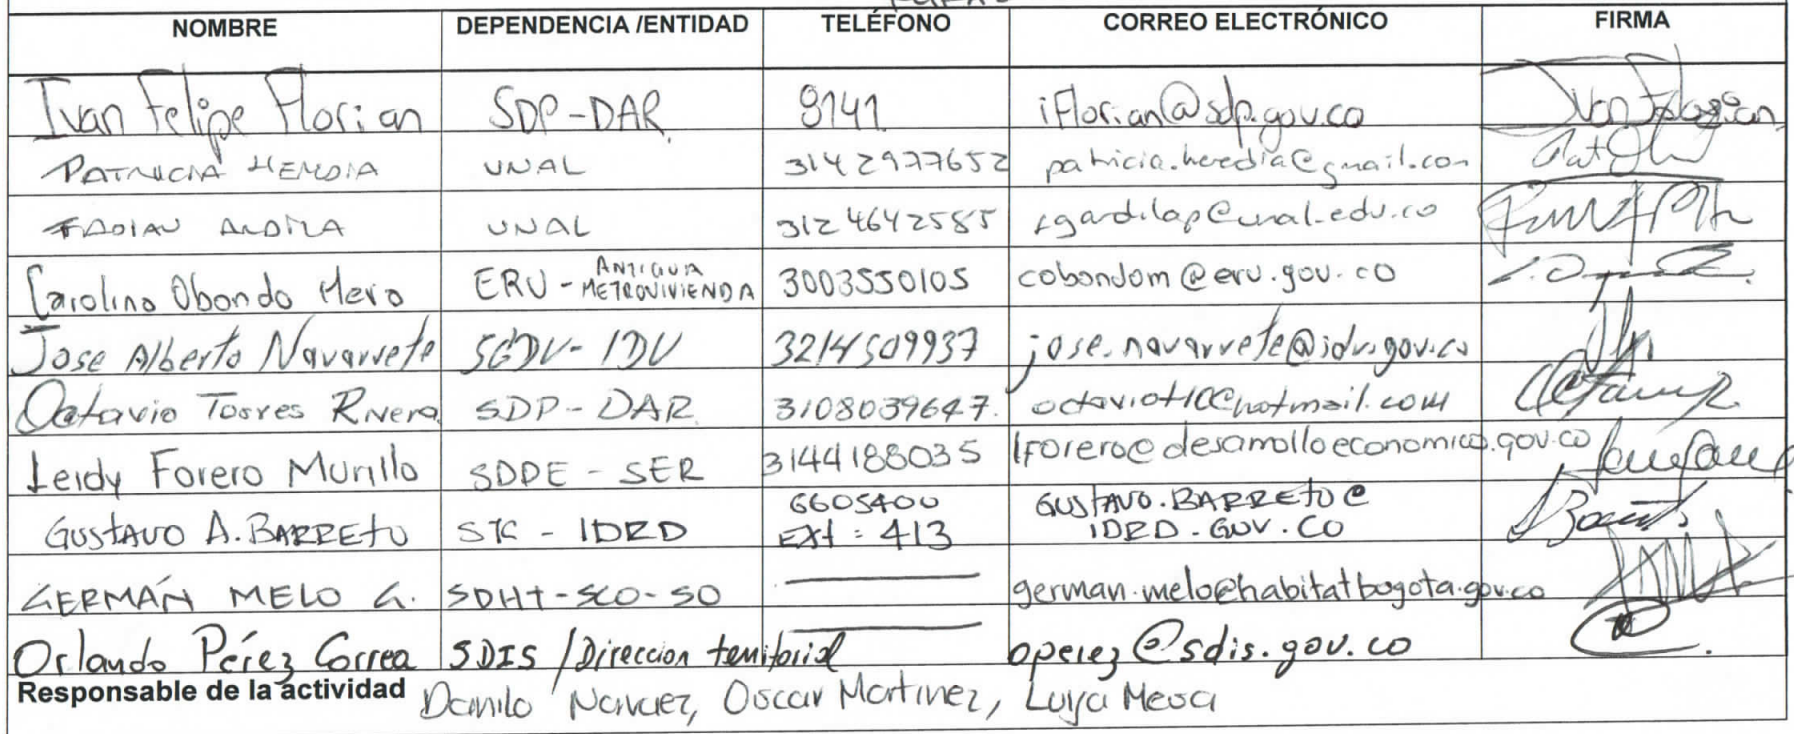 NOMBRE DEPENDENCIA /ENTIDAD TELÉFONO CORREO ELECTRÓNICO FIRMA
Ivan Felipe Florian SDP-DAR 8141 iflorian@sdp.gov.co
PATRICIA HEREDIA UNAL 3142977652 patricia.heredia@gmail.com
FABIAN ARDILA UNAL 3124642585 fgardilap@unal.edu.co
Carolina Obondo Mero ERU - ANTIGUA METROVIVIENDA 3003550105 cobondom@eru.gov.co
Jose Alberto Navarrete SGDU-IDU 3214509937 jose.navarrete@idu.gov.co
Octavio Torres Rivera SDP-DAR 3108039647. octaviot10@hotmail.com
Leidy Forero Murillo SDDE - SER 3144188035 lforero@desarrolloeconomico.gov.co
GUSTAVO A. BARRETO STC - IDRD 6605400 GUSTAVO.BARRETO@
EXT: 413 IDRD.GOV.CO
GERMÁN MELO G. SDHT-SCO-SO german.melo@habitatbogota.gov.co
Orlando Pérez Correa SDIS / Direccion territorial operez@sdis.gov.co
Responsable de la actividad Danilo Narvaez, Oscar Martinez, Luisa Mesa